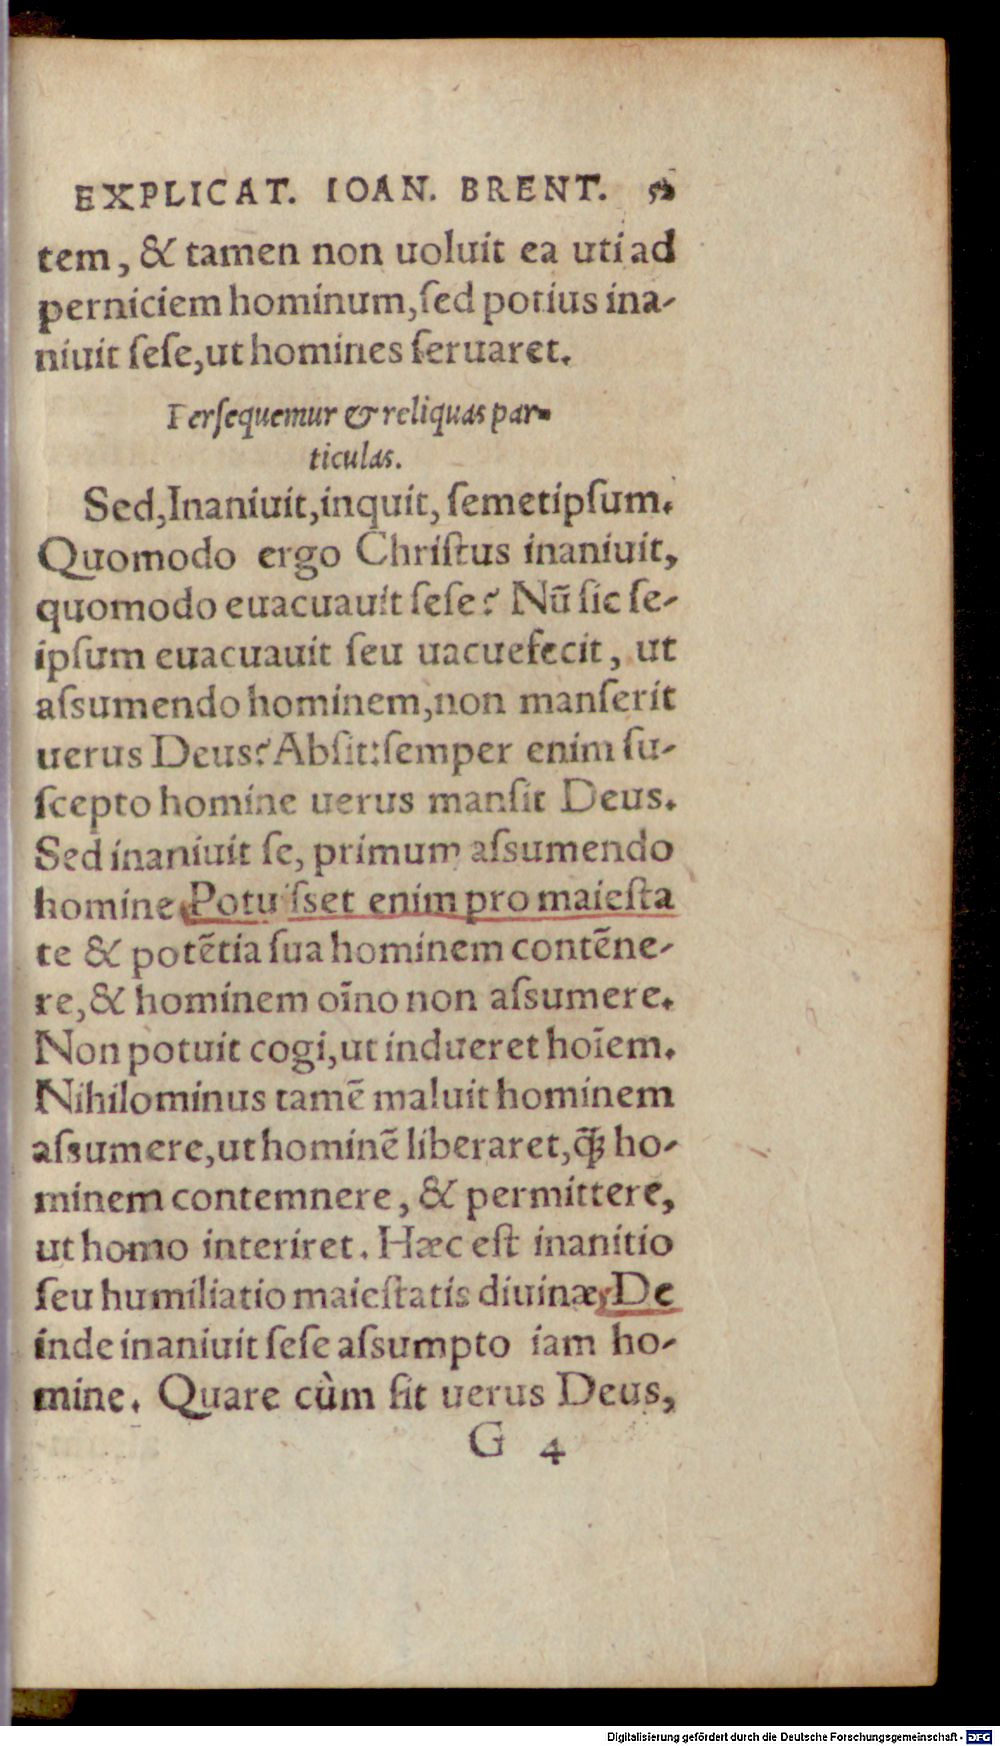 EXPLICAT. IOAN. BRENT. 52
tem, & tamen non uoluit ea uti ad
perniciem hominum, ſed potius ina-
niuit ſeſe, ut homines ſeruaret.
Perſequemur & reliquas par-
ticulas.
Sed, Inaniuit, inquit, ſemetipſum.
Quomodo ergo Chriſtus inaniuit,
quomodo euacuauit ſeſe? Nū ſic ſe-
ipſum euacuauit ſeu uacuefecit, ut
aſsumendo hominem, non manſerit
uerus Deus? Abſit: ſemper enim ſu-
ſcepto homine uerus manſit Deus.
Sed inaniuit ſe, primum aſsumendo
homine. Potuiſset enim pro maieſta
te & potētia ſua hominem contēne-
re, & hominem oīno non aſsumere.
Non potuit cogi, ut indueret hoīem.
Nihilominus tamē maluit hominem
aſsumere, ut hominē liberaret, ꝙ̃ꝫ ho-
minem contemnere, & permittere,
ut homo interiret. Hæc eſt inanitio
ſeu humiliatio maieſtatis diuinæ. De
inde inaniuit ſeſe aſsumpto iam ho-
mine. Quare cùm ſit uerus Deus,
G 4
Digitalisierung gefördert durch die Deutsche Forschungsgemeinschaft - DFG